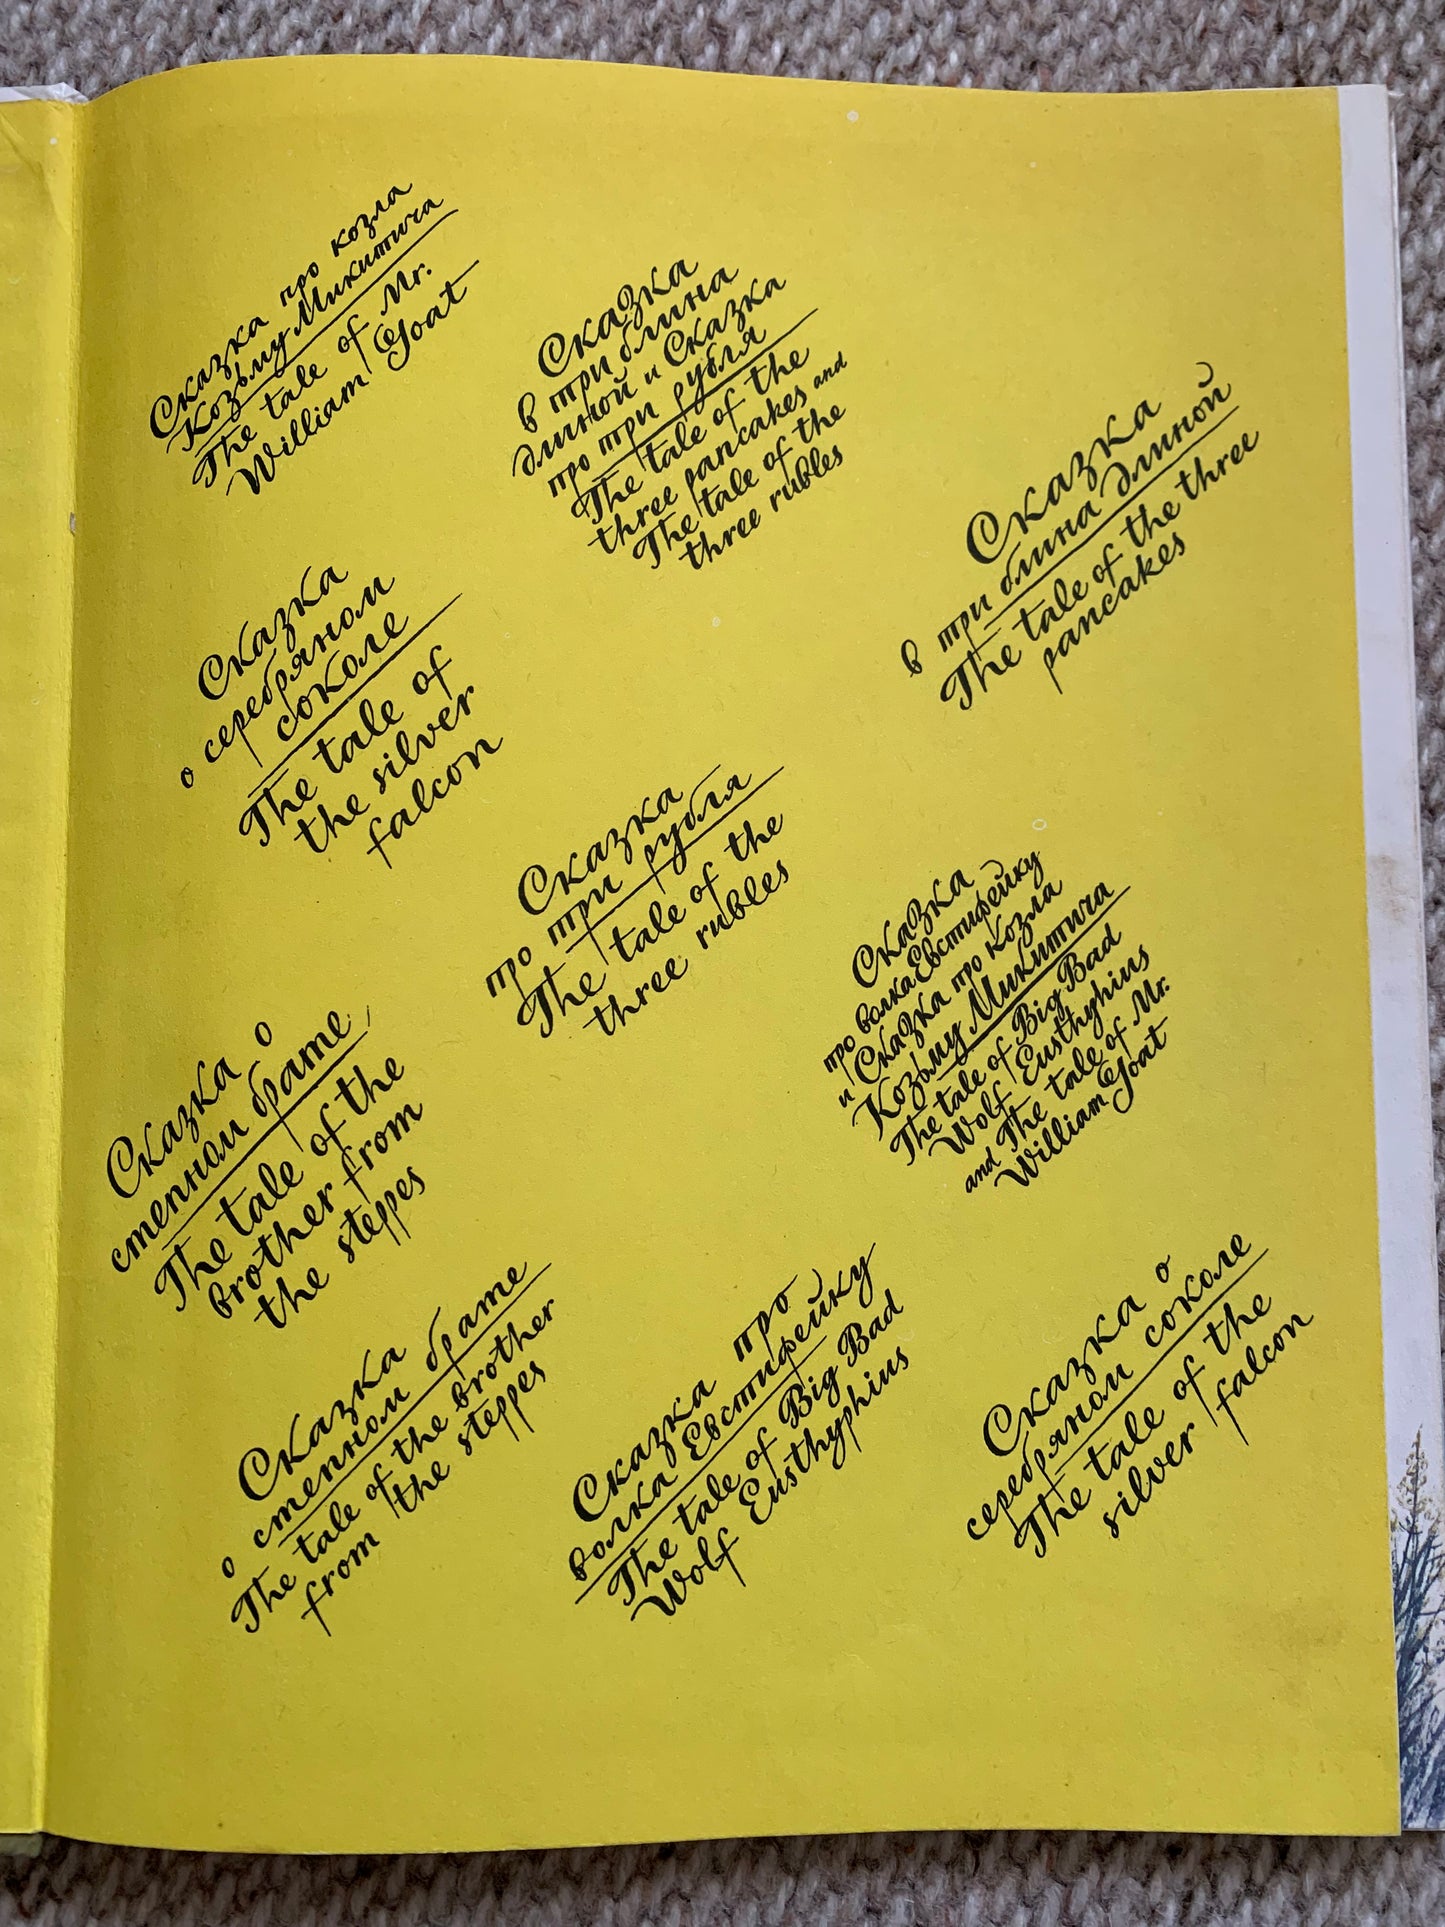 Сказка про козла
Козьму Микитича
The tale of Mr.
William Goat
Сказка
в три блина
длиной и Сказка
про три рубля
The tale of the
three pancakes and
The tale of the
three rubles
Сказка
в три блина длиной
The tale of the three
pancakes
Сказка
о серебряном
соколе
The tale of
the silver
falcon
Сказка
про три рубля
The tale of the
three rubles
Сказка
про волка Евстифейку
и Сказка про козла
Козьму Микитича
The tale of Big Bad
Wolf Eusthyphius
and The tale of Mr.
William Goat
Сказка о
степном брате
The tale of the
brother from
the steppes
Сказка
о степном брате
The tale of the brother
from the steppes
Сказка про
волка Евстифейку
The tale of Big Bad
Wolf Eusthyphius
Сказка о
серебряном соколе
The tale of the
silver falcon